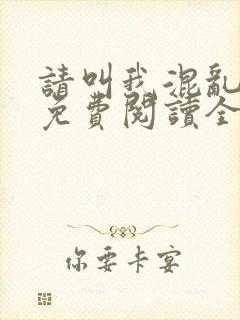 請叫我混亂
免費閱讀全
你要卡宴